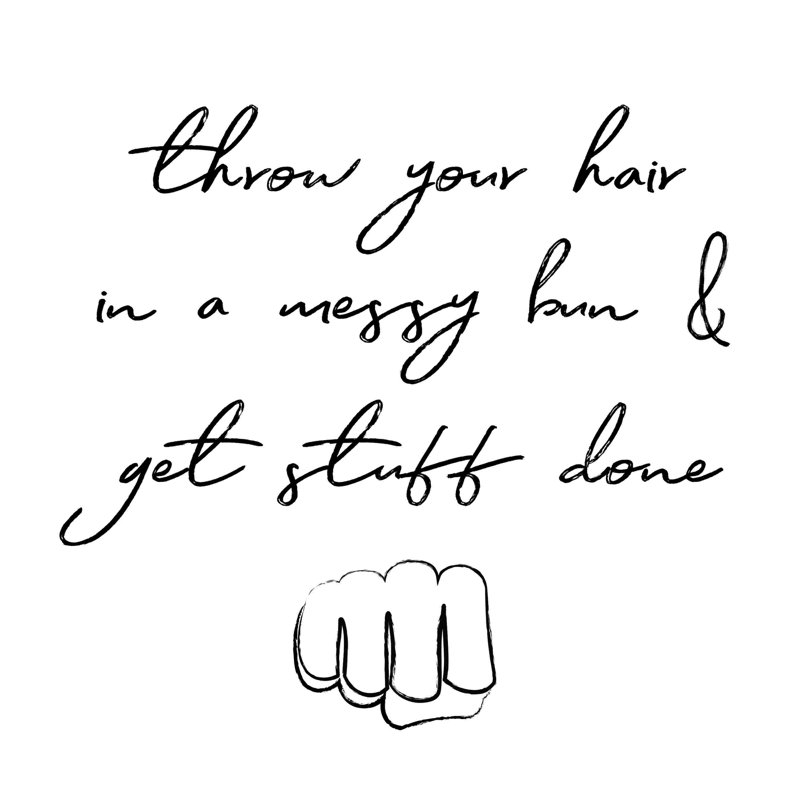 throw your hair
in a messy bun &
get stuff done